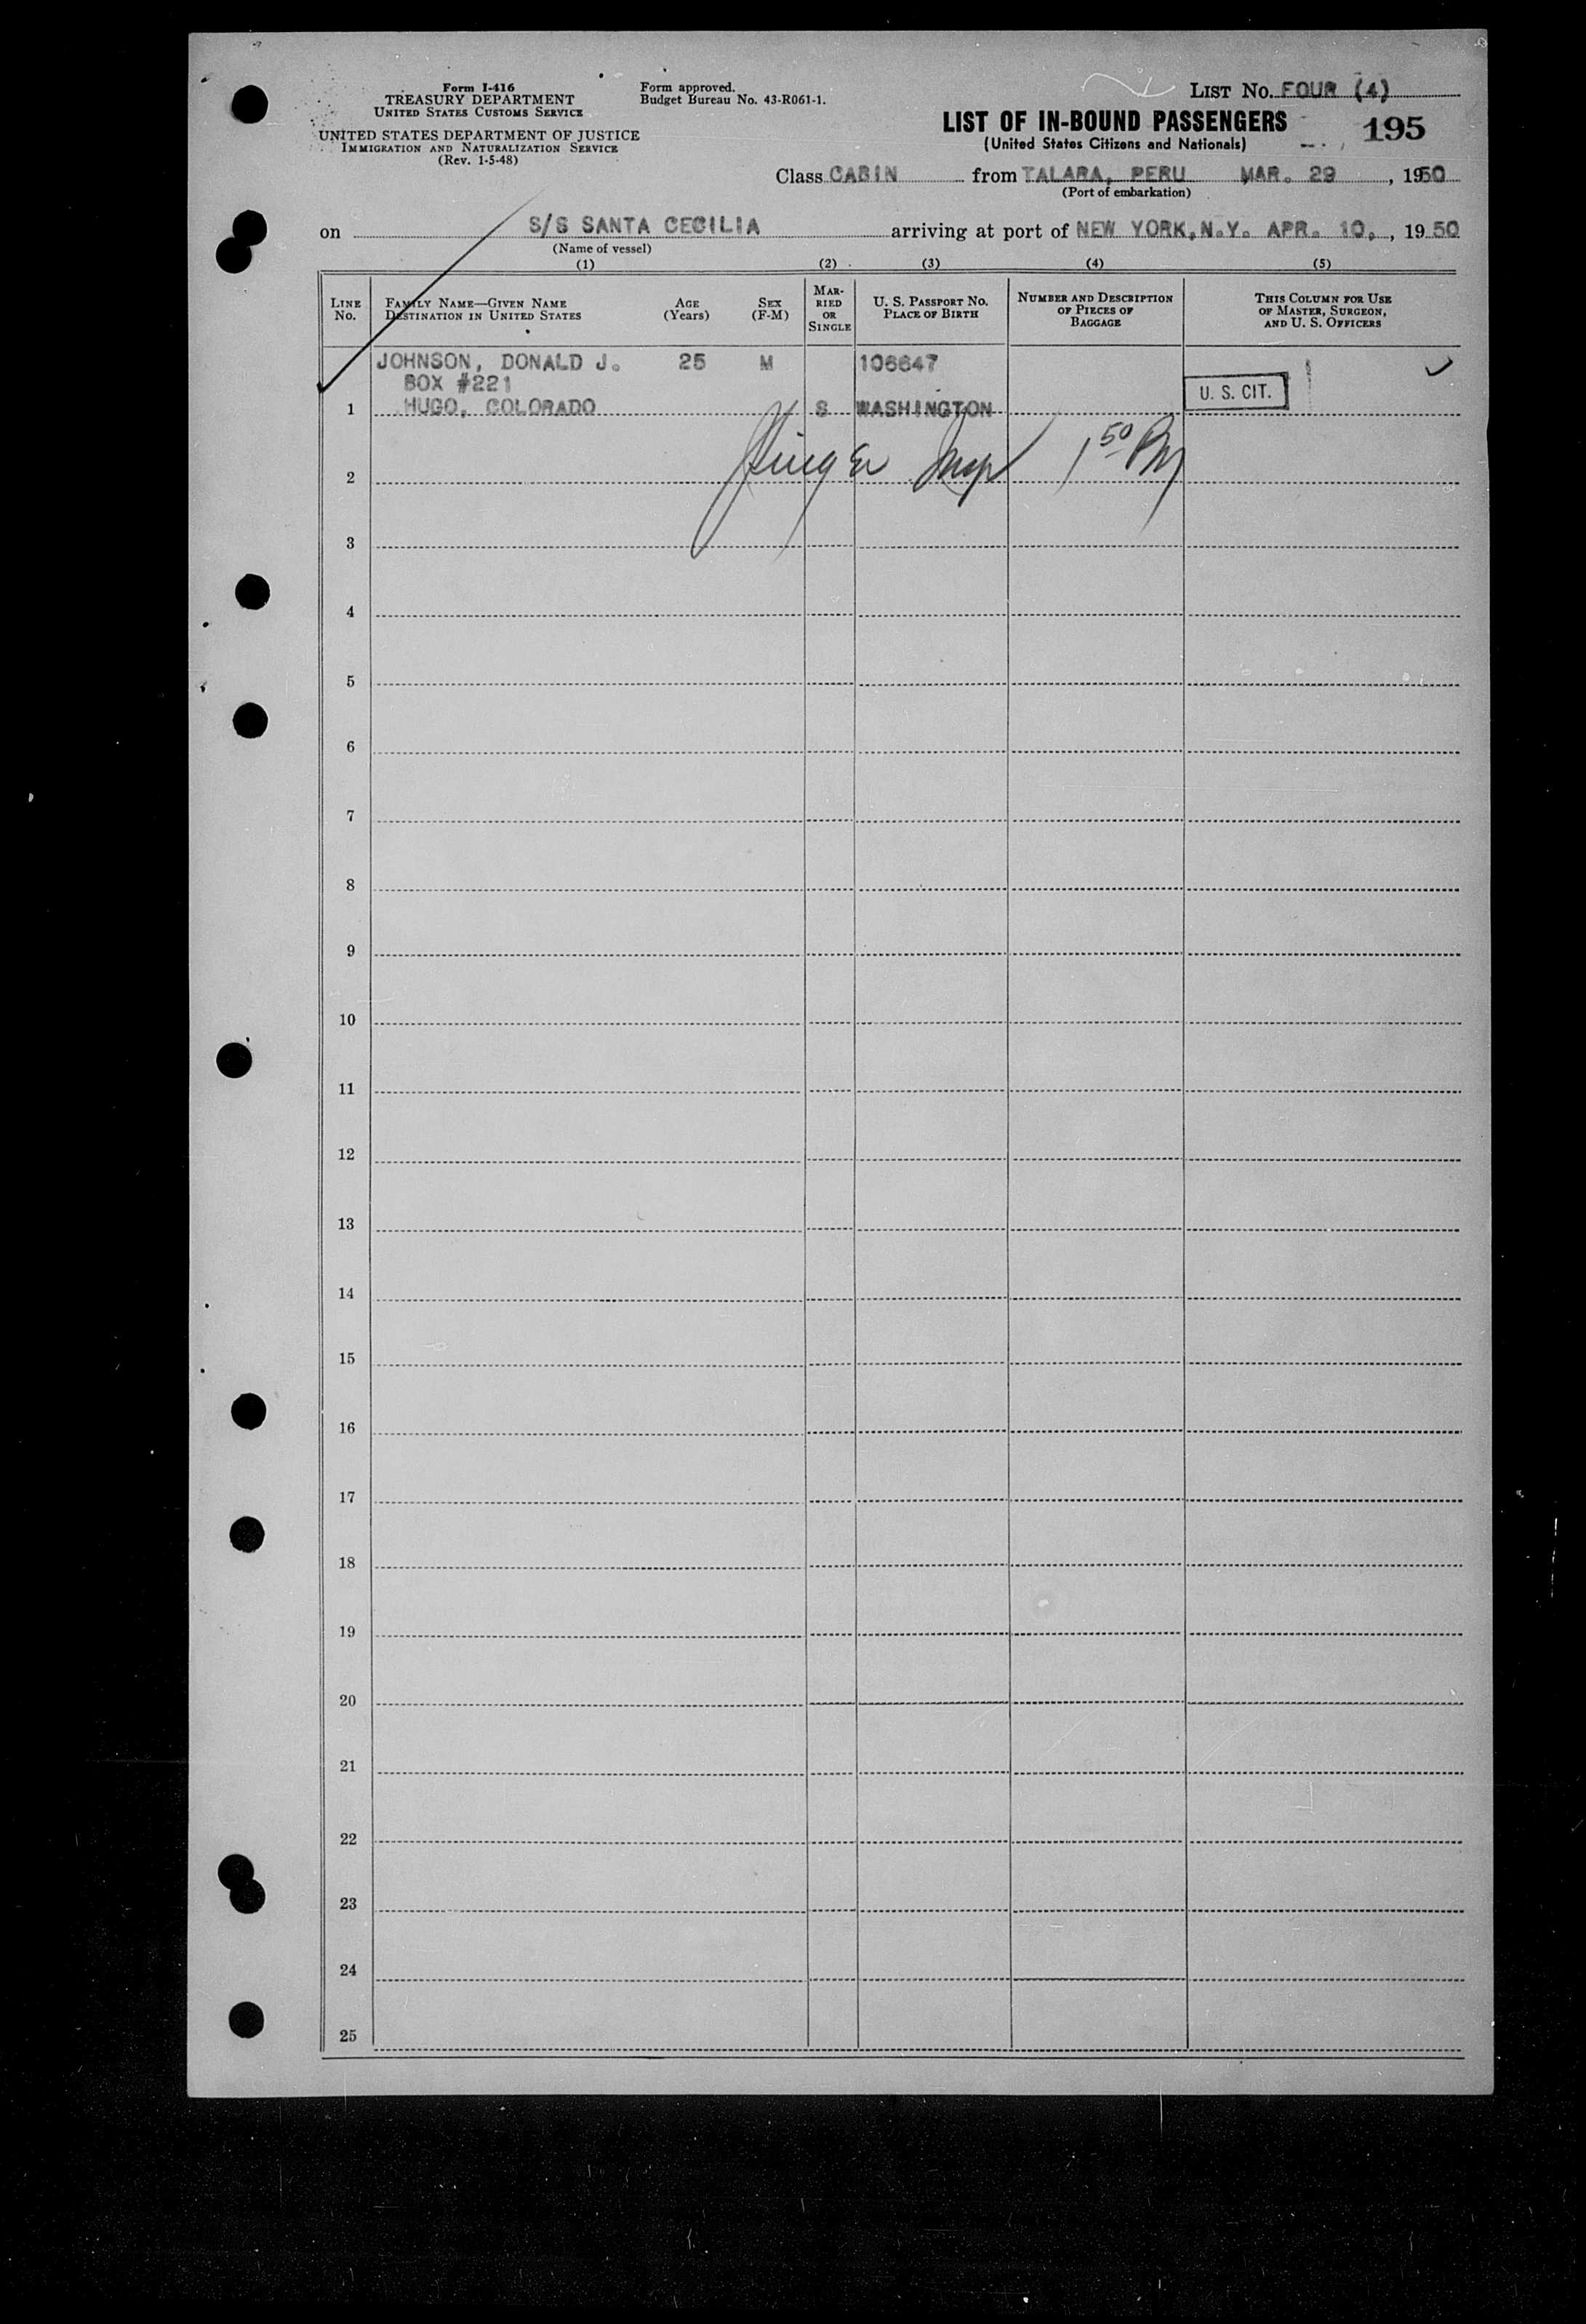 Form I-416
TREASURY DEPARTMENT
UNITED STATES CUSTOMS SERVICE
UNITED STATES DEPARTMENT OF JUSTICE
IMMIGRATION AND NATURALIZATION SERVICE
(Rev. 1-5-48)
Form approved.
Budget Bureau No. 43-R061-1.
LIST No. FOUR (4)
LIST OF IN-BOUND PASSENGERS
(United States Citizens and Nationals)
195
Class CABIN from TALARA, PERU MAR. 29, 1950
(Port of embarkation)
on S/S SANTA CECILIA arriving at port of NEW YORK, N.Y. APR. 10, , 1950
(Name of vessel)
(1) (2) (3) (4) (5)
LINE No.
FAMILY NAME—GIVEN NAME
DESTINATION IN UNITED STATES
AGE
(Years)
SEX
(F-M)
MAR-
RIED
OR
SINGLE
U. S. PASSPORT No.
PLACE OF BIRTH
NUMBER AND DESCRIPTION
OF PIECES OF
BAGGAGE
THIS COLUMN FOR USE
OF MASTER, SURGEON,
AND U. S. OFFICERS
JOHNSON, DONALD J. 25 M 106647
BOX #221
1 HUGO, COLORADO S WASHINGTON
U. S. CIT.
Insp 1 50 PM
2
3
4
5
6
7
8
9
10
11
12
13
14
15
16
17
18
19
20
21
22
23
24
25